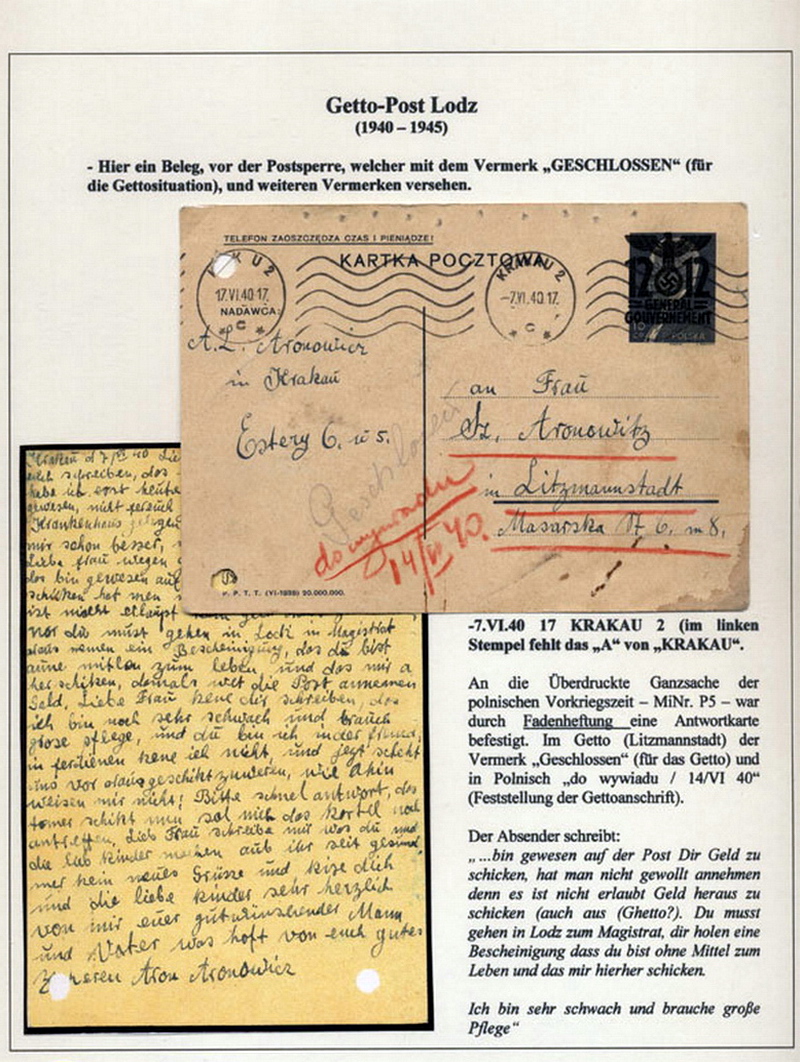 Getto-Post Lodz
(1940 – 1945)
- Hier ein Beleg, vor der Postsperre, welcher mit dem Vermerk „GESCHLOSSEN“ (für
die Gettosituation), und weiteren Vermerken versehen.
TELEFON ZAOSZCZĘDZA CZAS I PIENIĄDZE!
KARTKA POCZTOWA
K KU 2
17.VI.40 17.
C
KRAKAU 2
-7.VI.40 17.
C
12 12
GENERAL
GOUVERNEMENT
POLSKA
NADAWCA:
A.L. Aronowicz
in Krakau
Estery 6. w 5.
an Frau
Sz. Aronowitz
in Litzmannstadt
Masarska 6. m 8.
Geschlossen
do wywiadu
14/VI 40.
P. P. T. T. (VI-1938) 20.000.000.
Krakau d 7/VI 40 Lie
schreiben, das
habe ich erst heute
gewesen, nicht
Krankenhaus
mir schon besser,
Liebe frau wegen
das bin gewesen auf
schicken hat men
ist nicht erlaupt
nor du must gehen in Lodz in Magistrat
nemen ein Bescheinigung, das du bist
mitlen zum leben, und das mir a
her schiken, damals wet die Post annemen
Geld, Liebe Frau kene dir schreiben, das
ich bin noch sehr schwach und brauch
grose pflege, und du bin ich in der fremd,
in kene ich nicht, und jezt schekt
uns vor
weisen mir nicht; Bitte schnel antwort, das
tomer schikt mun sol mich das kartel noch
antreffen, Lieb Frau schreibe mir was du und
die lieb kinder machen aub ihr seit gesund
mer kein neues Grüsse und kise dich
und die liebe kinder sehr herzlich
von mir euer gutwünschender Mann
und Vater was hoft von euch gutes
zu heren Aron Aronowicz
-7.VI.40 17 KRAKAU 2 (im linken
Stempel fehlt das „A“ von „KRAKAU“.
An die Überdruckte Ganzsache der
polnischen Vorkriegszeit – MiNr. P5 – war
durch Fadenheftung eine Antwortkarte
befestigt. Im Getto (Litzmannstadt) der
Vermerk „Geschlossen“ (für das Getto) und
in Polnisch „do wywiadu / 14/VI 40“
(Feststellung der Gettoanschrift).
Der Absender schreibt:
„ ...bin gewesen auf der Post Dir Geld zu
schicken, hat man nicht gewollt annehmen
denn es ist nicht erlaubt Geld heraus zu
schicken (auch aus (Ghetto?). Du musst
gehen in Lodz zum Magistrat, dir holen eine
Bescheinigung dass du bist ohne Mittel zum
Leben und das mir hierher schicken.
Ich bin sehr schwach und brauche große
Pflege“